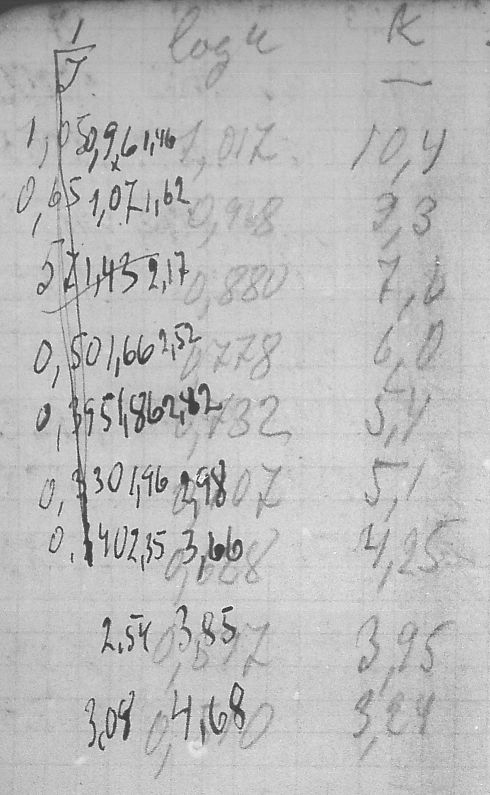 1 log κ κ
J
1,05 0,96 1,46 1,017 10,4
0,65 1,07 1,62 0,968 9,3
57 1,43 2,17 0,880 7,6
0,50 1,66 2,52 0,778 6,0
0,395 1,86 2,82 0,732 5,4
0,330 1,96 2,98 0,707 5,1
0,140 2,35 3,66 0,628 4,25
2,54 3,85 0,597 3,95
3,08 4,68 3,24